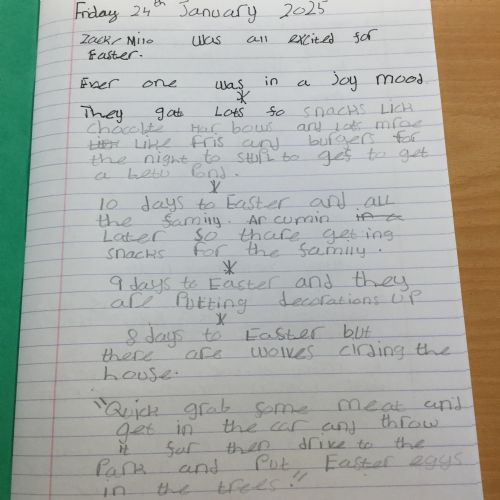 Friday 24th January 2025
Zack/Milo was all excited for
Easter.
Ever one was in a Joy mood
They got Lots fo snacks Lick
chacolte Har bows and lots mroe
Like fris and burgers for
the night to stull to get to get
a betu
10 days to Easter and all
the family. Ar cumin
Later so thare geting
snacks for the family.
9 days to Easter and they
are Putting decorations UP
8 days to Easter but
there are wolves circling the
house.
"Quick grab some meat and
get in the car and throw
it far then drive to the
Park and Put Easter eggs
in the trees!"